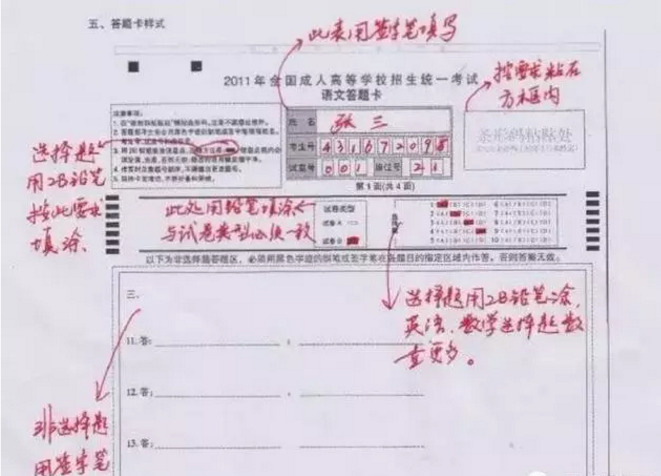 五、答题卡样式
此表用签字笔填写
2011年全国成人高等学校招生统一考试
语文答题卡
按要求粘在
方框内
注意事项:
姓 名 张三
考生号 431672098
试室号 001 座位号 21
条形码粘贴处
第1页(共4页)
选择题
用2B铅笔
按此要求
填涂.
此处用铅笔填涂
与试卷类型必须一致
试卷类型
试卷A
试卷B
1 [A] [B] [C] [D]
2 [A] [B] [C] [D]
3 [A] [B] [C] [D]
4 [A] [B] [C] [D]
5 [A] [B] [C] [D]
以下为非选择题答题区,必须用黑色字迹的钢笔或签字笔在各题目的指定区域内作答,否则答案无效。
选择题用2B铅笔涂,
英语、数学选择题数
量更多。
三.
11.答:
12.答:
13.答:
非选择题
用签字笔